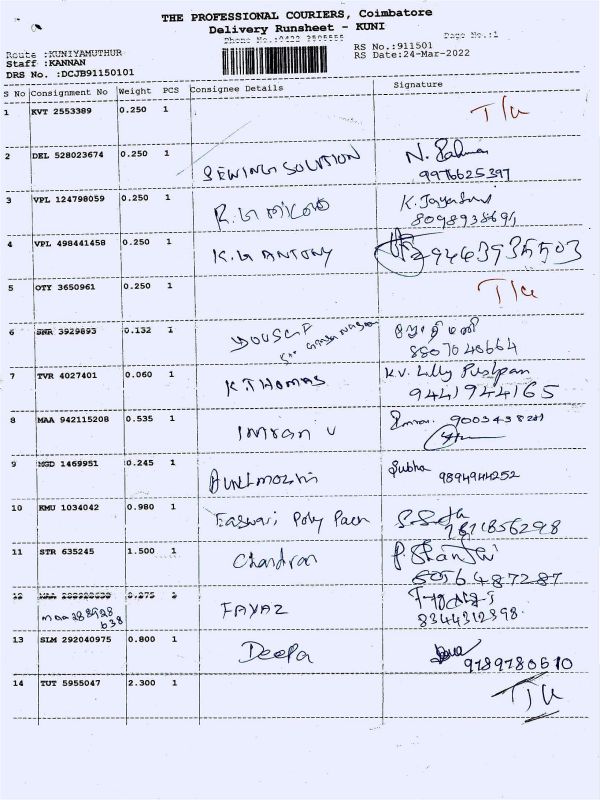 THE PROFESSIONAL COURIERS, Coimbatore
Delivery Runsheet - KUNI
Page No.:1
Route :KUNIYAMUTHUR
Staff :KANNAN
DRS No. :DCJB91150101
RS No.:911501
RS Date:24-Mar-2022
S No Consignment No Weight PCS Consignee Details Signature
1 KVT 2553389 0.250 1
2 DEL 528023674 0.250 1 SEWING SOLUTION
9976625397
3 VPL 124798059 0.250 1
8098938694
4 VPL 498441458 0.250 1 K.G ANTONY
5 OTY 3650961 0.250 1
6 SNR 3929893 0.132 1
8807048664
7 TVR 4027401 0.060 1 K THOMAS K.V. Lilly Pushpam
9441944165
8 MAA 942115208 0.535 1 Imran v
9 MGD 1469951 0.245 1 Subha 9894944252
10 KMU 1034042 0.980 1 Easwari Poly Pack
11 STR 635245 1.500 1 Chandran P. Shanthi
12 0.275 FAYAZ
8344312398
13 SLM 292040975 0.800 1 Deepa
9789780610
14 TUT 5955047 2.300 1